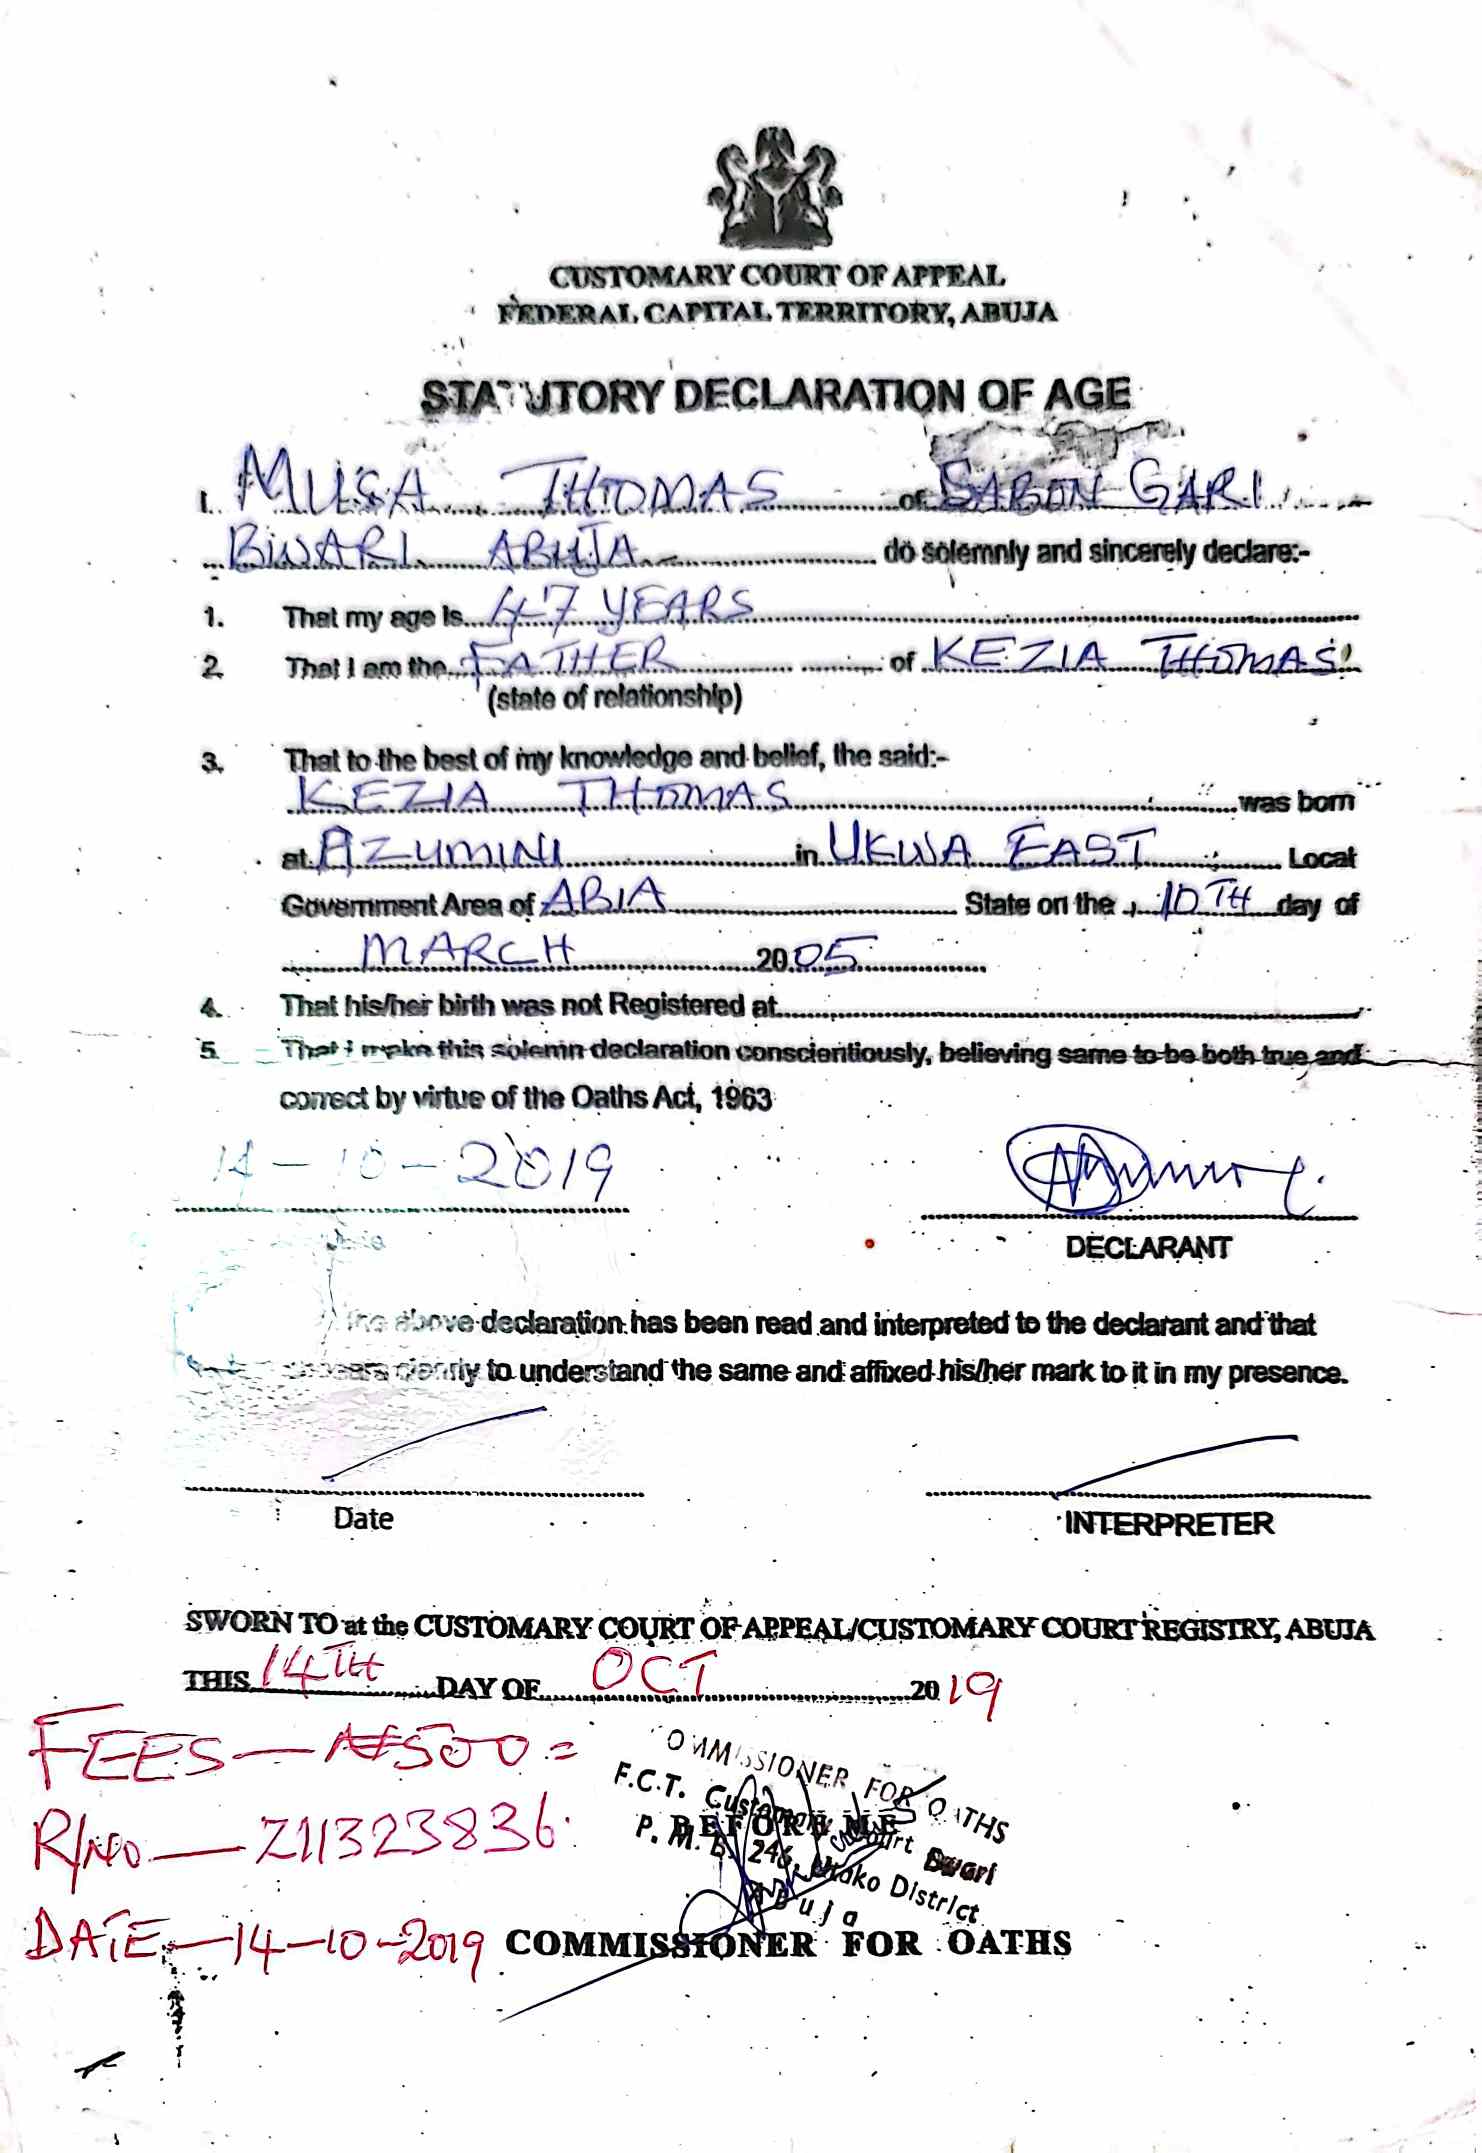 CUSTOMARY COURT OF APPEAL
FEDERAL CAPITAL TERRITORY, ABUJA
STATUTORY DECLARATION OF AGE
I, MUSA THOMAS of SABON GARI
BWARI ABUJA do solemnly and sincerely declare:-
1. That my age is 47 YEARS
2. That I am the FATHER of KEZIA THOMAS
(state of relationship)
3. That to the best of my knowledge and belief, the said:-
KEZIA THOMAS was born
at AZUMINI in UKWA EAST Local
Government Area of ABIA State on the 10TH day of
MARCH 2005
4. That his/her birth was not Registered at
5. That I make this solemn declaration conscientiously, believing same to be both true and
correct by virtue of the Oaths Act, 1963
14-10-2019
DECLARANT
the above declaration has been read and interpreted to the declarant and that
clearly to understand the same and affixed his/her mark to it in my presence.
Date INTERPRETER
SWORN TO at the CUSTOMARY COURT OF APPEAL/CUSTOMARY COURT REGISTRY, ABUJA
THIS 14TH DAY OF OCT 2019
FEES — ₦500=
R/NO — Z11323836
DATE — 14-10-2019
COMMISSIONER FOR OATHS
F.C.T. Customary Court Bwari
P. M. B. 246, Utako District
Abuja
BEFORE ME
COMMISSIONER FOR OATHS